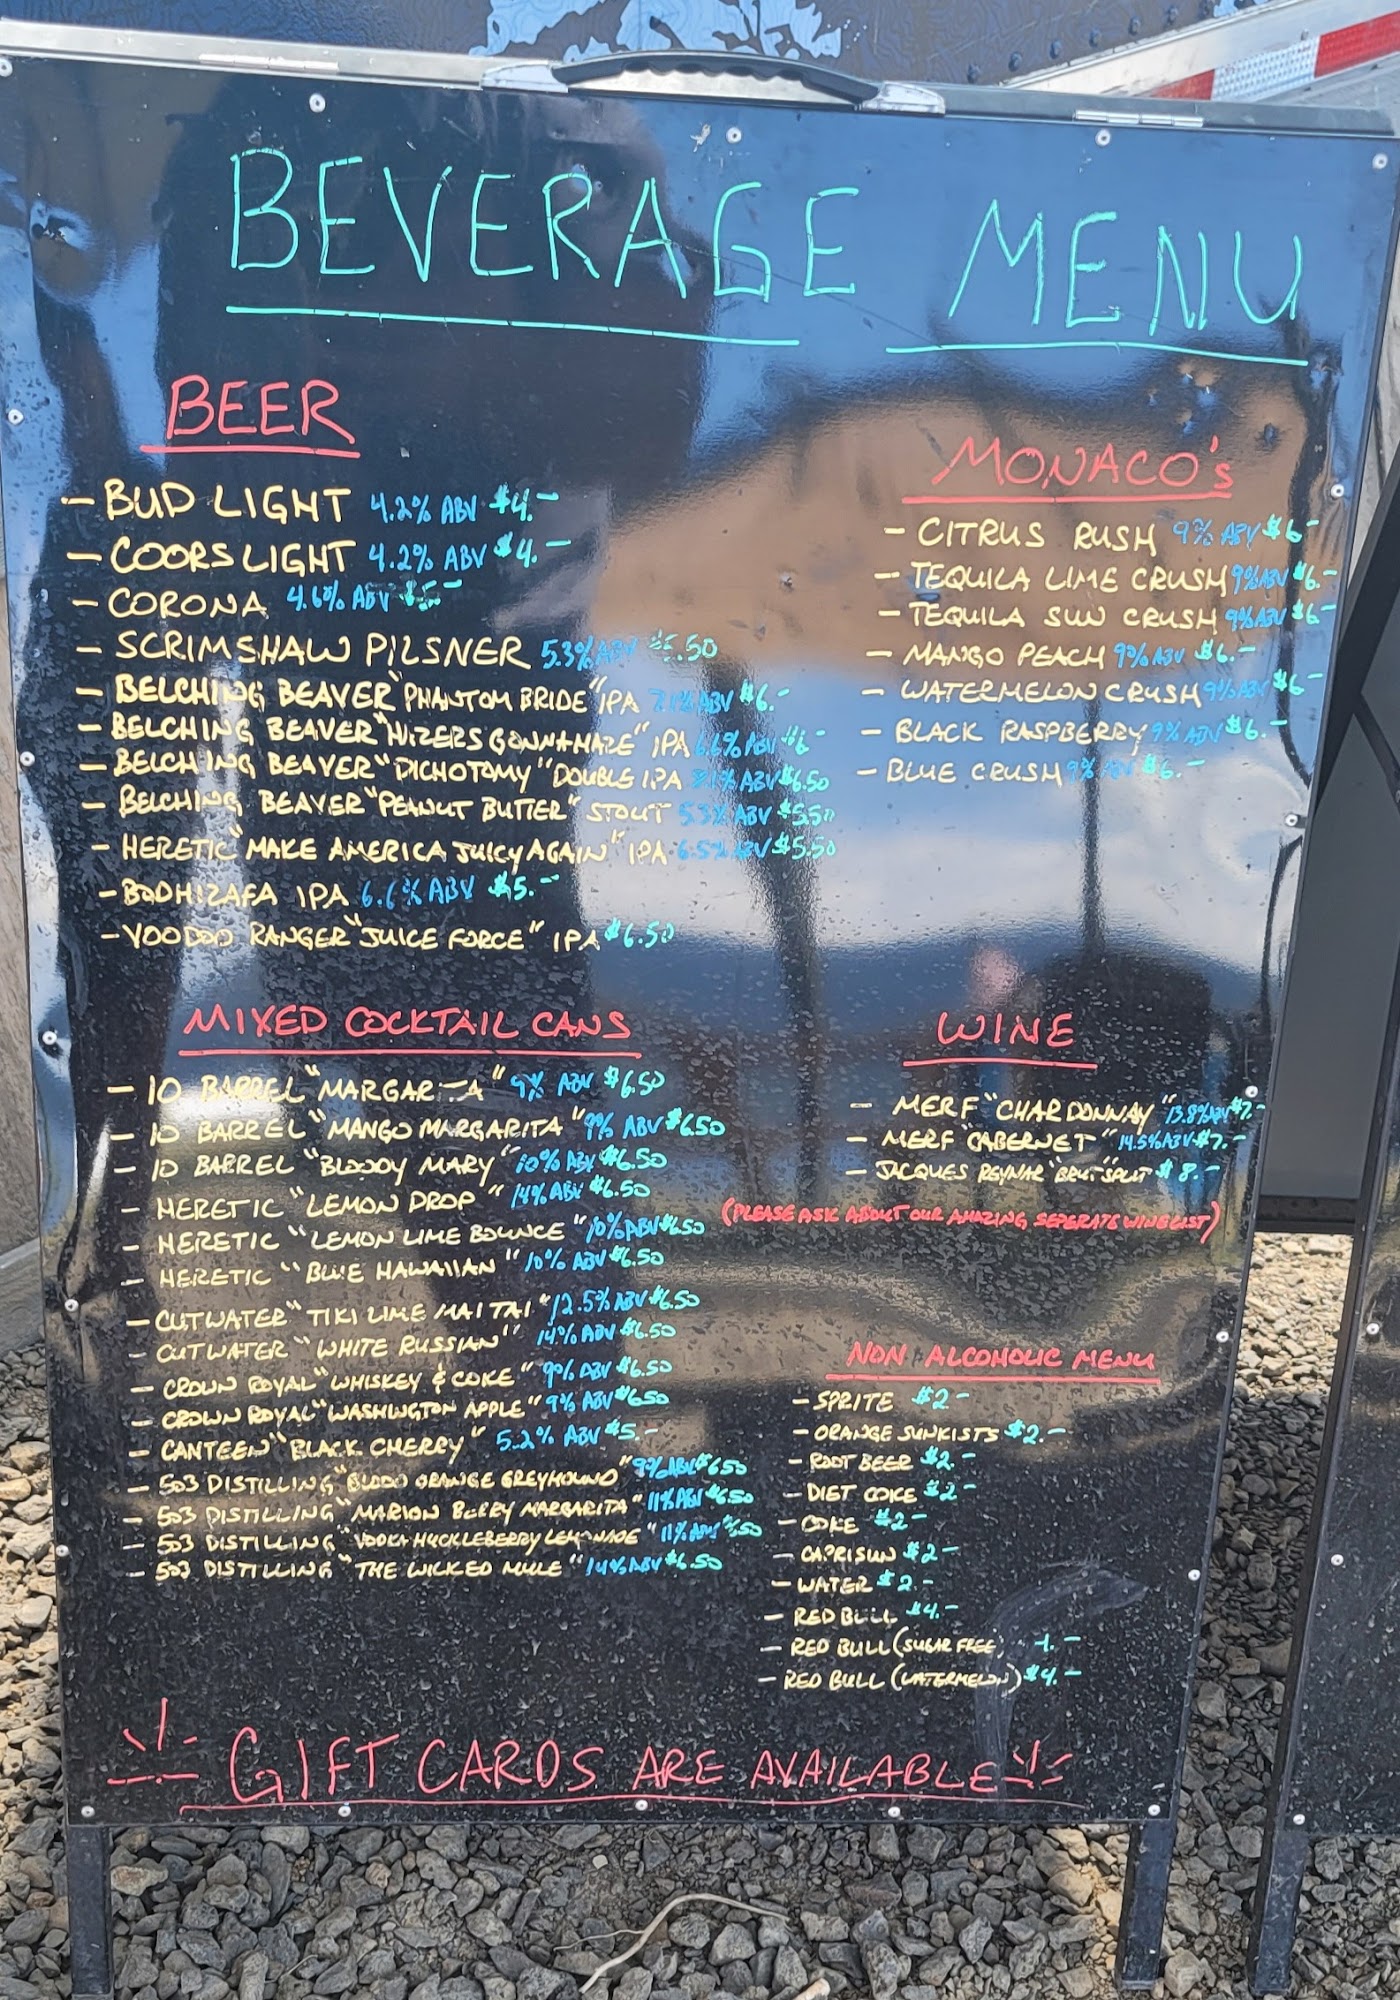 BEVERAGE MENU
BEER
- BUD LIGHT 4.2% ABV $4.-
- COORS LIGHT 4.2% ABV $4.-
- CORONA 4.6% ABV $5-
- SCRIMSHAW PILSNER 5.3% ABV $5.50
- BELCHING BEAVER "PHANTOM BRIDE" IPA 7.1% ABV $6.-
- BELCHING BEAVER IPA 6.6% ABV $6-
- BELCHING BEAVER "DICHOTOMY" DOUBLE IPA 8.1% ABV $6.50
- BELCHING BEAVER "PEANUT BUTTER" STOUT 5.3% ABV $5.50
- HERETIC "MAKE AMERICA JUICY AGAIN" IPA 6.5% ABV $5.50
- BODHIZAFA IPA 6.6% ABV $5.-
- VOODOO RANGER "JUICE FORCE" IPA $6.50
MONACO's
- CITRUS RUSH 9% ABV $6-
- TEQUILA LIME CRUSH 9% ABV $6.-
- TEQUILA SUN CRUSH 9% ABV $6-
- MANGO PEACH 9% ABV $6.-
- WATERMELON CRUSH 9% ABV $6-
- BLACK RASPBERRY 9% ABV $6.-
- BLUE CRUSH 9% ABV $6.-
MIXED COCKTAIL CANS
- 10 BARREL "MARGARITA" 9% ABV $6.50
- 10 BARREL "MANGO MARGARITA" 9% ABV $6.50
- 10 BARREL "BLOODY MARY" 10% ABV $6.50
- HERETIC "LEMON DROP" 14% ABV $6.50
- HERETIC "LEMON LIME BOUNCE" 10% ABV $6.50
- HERETIC "BLUE HAWAIIAN" 10% ABV $6.50
- CUTWATER "TIKI LIME MAI TAI" 12.5% ABV $6.50
- CUTWATER "WHITE RUSSIAN" 14% ABV $6.50
- CROWN ROYAL "WHISKEY & COKE" 9% ABV $6.50
- CROWN ROYAL "WASHINGTON APPLE" 9% ABV $6.50
- CANTEEN "BLACK CHERRY" 5.2% ABV $5.-
- 503 DISTILLING "BLOOD ORANGE GREYHOUND" 9% ABV $6.50
- 503 DISTILLING "MARION BERRY MARGARITA" 11% ABV $6.50
- 503 DISTILLING "VODKA HUCKLEBERRY LEMONADE" 11% ABV $6.50
- 503 DISTILLING "THE WICKED MULE" 14% ABV $6.50
WINE
- MERF "CHARDONNAY" 13.8% ABV $7.-
- MERF "CABERNET" 14.5% ABV $7.-
- JACQUES REYNAR "BRUT" SPLIT $8.-
(PLEASE ASK ABOUT OUR AMAZING SEPERATE WINE LIST)
NON ALCOHOLIC MENU
- SPRITE $2-
- ORANGE SUNKISTS $2.-
- ROOT BEER $2.-
- DIET COKE $2-
- COKE $2-
- CAPRISUN $2-
- WATER $2.-
- RED BULL $4.-
- RED BULL (SUGAR FREE)
- RED BULL (WATERMELON) $4.-
GIFT CARDS ARE AVAILABLE